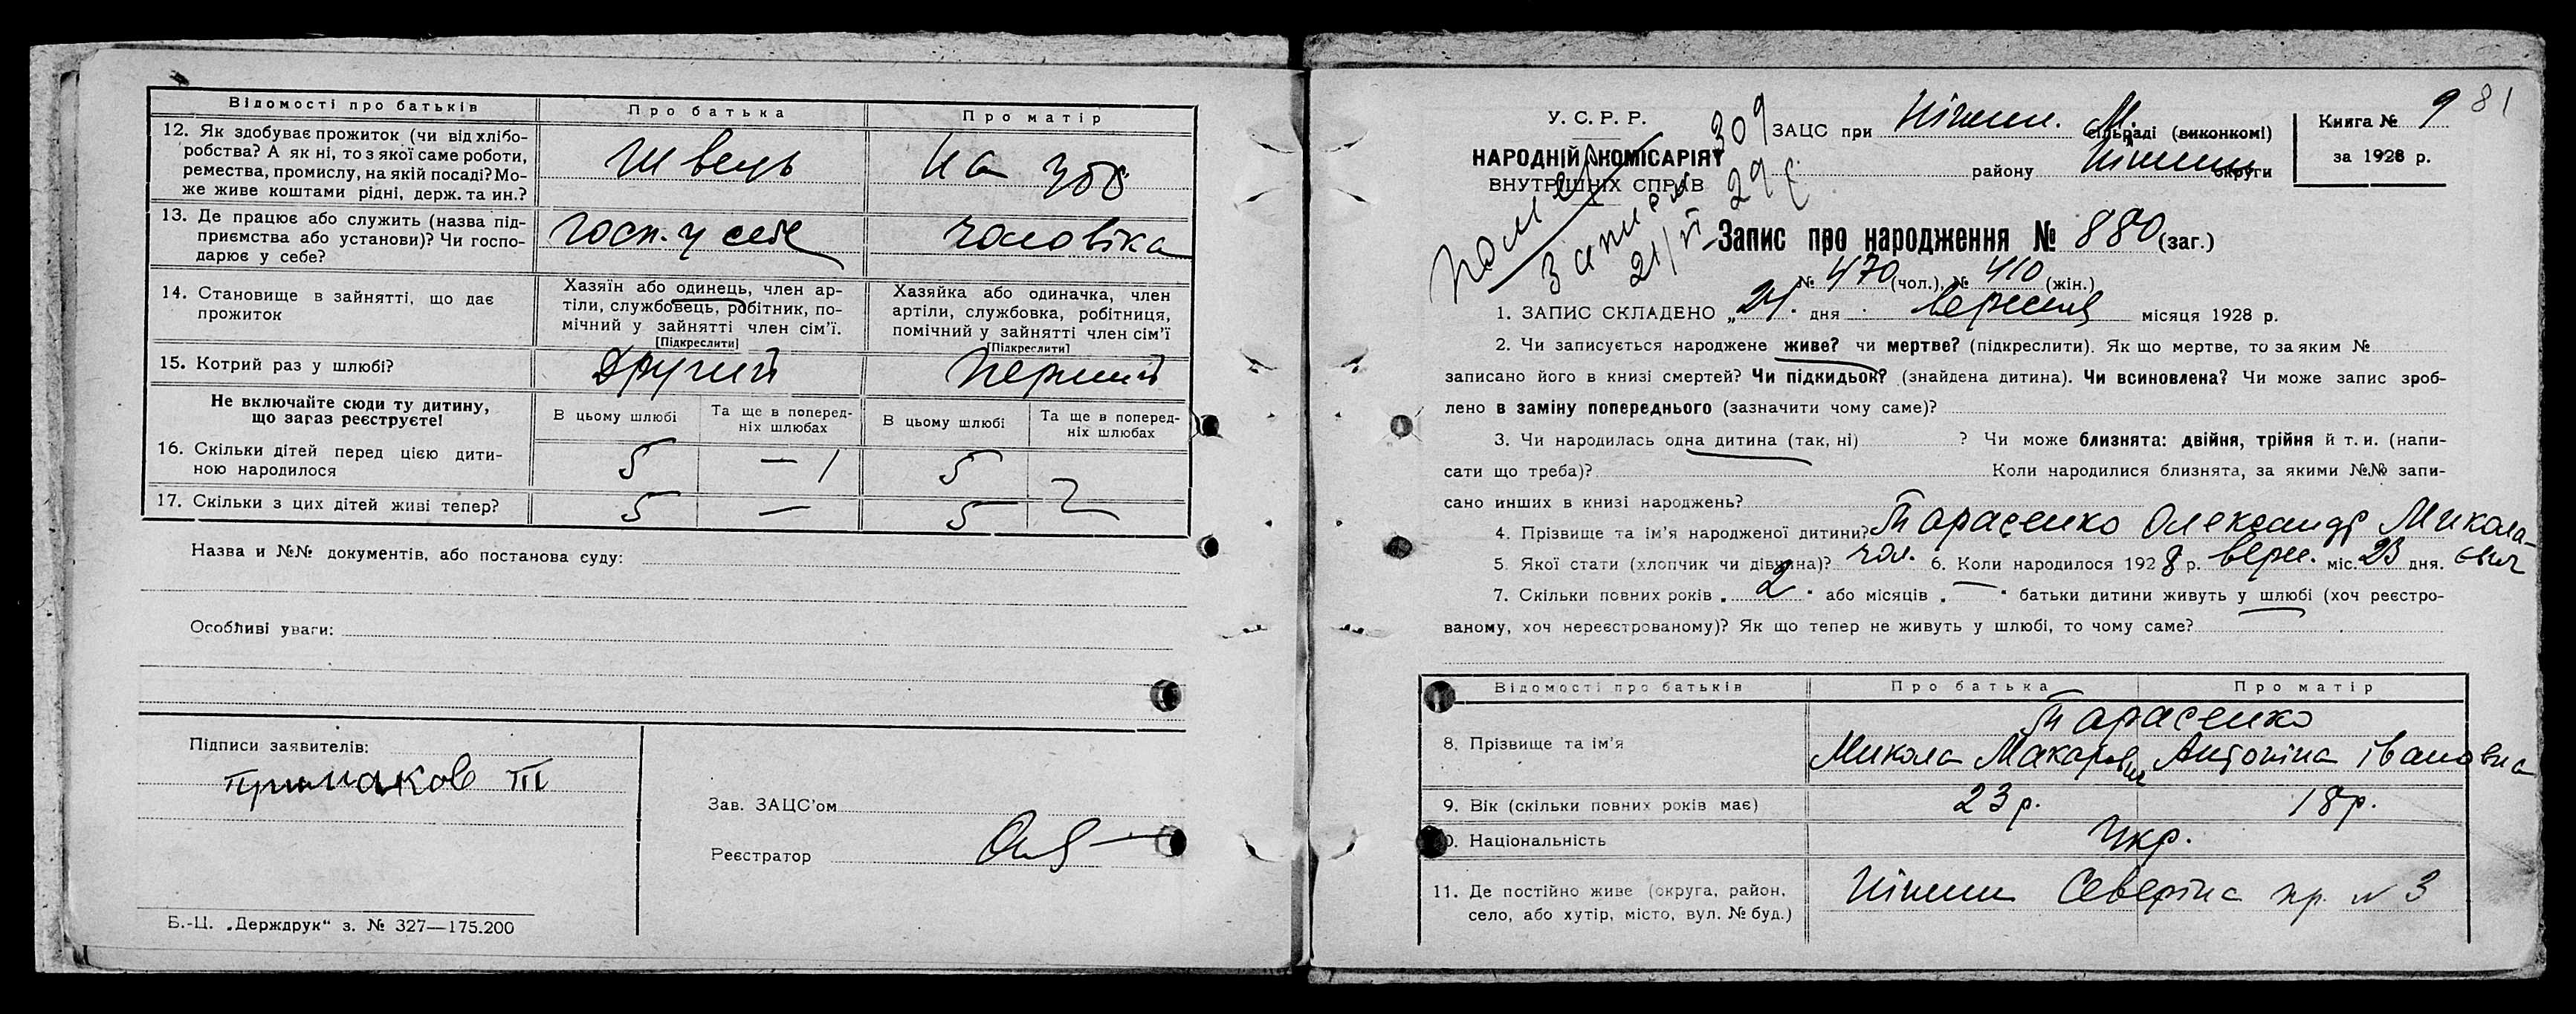 Відомості про батьків Про батька Про матір
12. Як здобуває прожиток (чи від хлібо-
робства? А як ні, то з якої саме роботи,
ремества, промислу, на якій посаді? Мо-
же живе коштами рідні, держ. та ин.?
Швець
На
13. Де працює або служить (назва під-
приємства або установи)? Чи госпо-
дарює у себе?
Госп. у себе
чоловіка
14. Становище в зайнятті, що дає
прожиток
Хазяїн або одинець, член ар-
тіли, службовець, робітник, по-
мічний у зайнятті член сім'ї.
[Підкреслити]
Хазяйка або одиначка, член
артіли, службовка, робітниця,
помічний у зайнятті член сім'ї
[Підкреслити]
15. Котрий раз у шлюбі? Другий Перший
Не включайте сюди ту дитину,
що зараз реєструєте!
В цьому шлюбі
Та ще в поперед-
ніх шлюбах
В цьому шлюбі
Та ще в поперед-
ніх шлюбах
16. Скільки дітей перед цією дити-
ною народилося
5 — 1 5
17. Скільки з цих дітей живі тепер? 5 — 5
Назва и №№ документів, або постанова суду:
Особливі уваги:
Підписи заявителів:
Примаков
Зав. ЗАЦС'ом
Реєстратор
Б.-Ц. „Держдрук“ з. № 327—175.200
81
У. С. Р. Р.
НАРОДНІЙ КОМІСАРІЯТ
ВНУТРІШНІХ СПРАВ
Помер
Запис 309
21/VI 29 р.
ЗАЦС при Ніжин. М. сільраді (виконкомі)
району Ніжин округи
Книга № 9
за 1928 р.
Запис про народження № 880 (заг.)
№ 470 (чол.), № 410 (жін.)
1. ЗАПИС СКЛАДЕНО „24. дня вересня місяця 1928 р.
2. Чи записується народжене живе? чи мертве? (підкреслити). Як що мертве, то за яким №
записано його в книзі смертей? Чи підкидьок? (знайдена дитина). Чи всиновлена? Чи може запис зроб-
лено в заміну попереднього (зазначити чому саме)?
3. Чи народилась одна дитина (так, ні) ? Чи може близнята: двійня, трійня й т. и. (напи-
сати що треба)? Коли народилися близнята, за якими №№ запи-
сано инших в книзі народжень?
4. Прізвище та ім'я народженої дитини? Тарасенко Олександр Микола-
евич
5. Якої стати (хлопчик чи дівчина)? чол. 6. Коли народилося 1928 р. верес. міс. 23 дня.
7. Скільки повних років „ 2 “ або місяців „ — “ батьки дитини живуть у шлюбі (хоч реєстро-
ваному, хоч нереєстрованому)? Як що тепер не живуть у шлюбі, то чому саме?
Відомості про батьків Про батька Про матір
8. Прізвище та ім'я
Тарасенко
Микола Макарович Антоніна Івановна
9. Вік (скільки повних років має) 23 р. 18 р.
10. Національність Укр.
11. Де постійно живе (округа, район,
село, або хутір, місто, вул. № буд.)
Ніжин Северіна пр. № 3